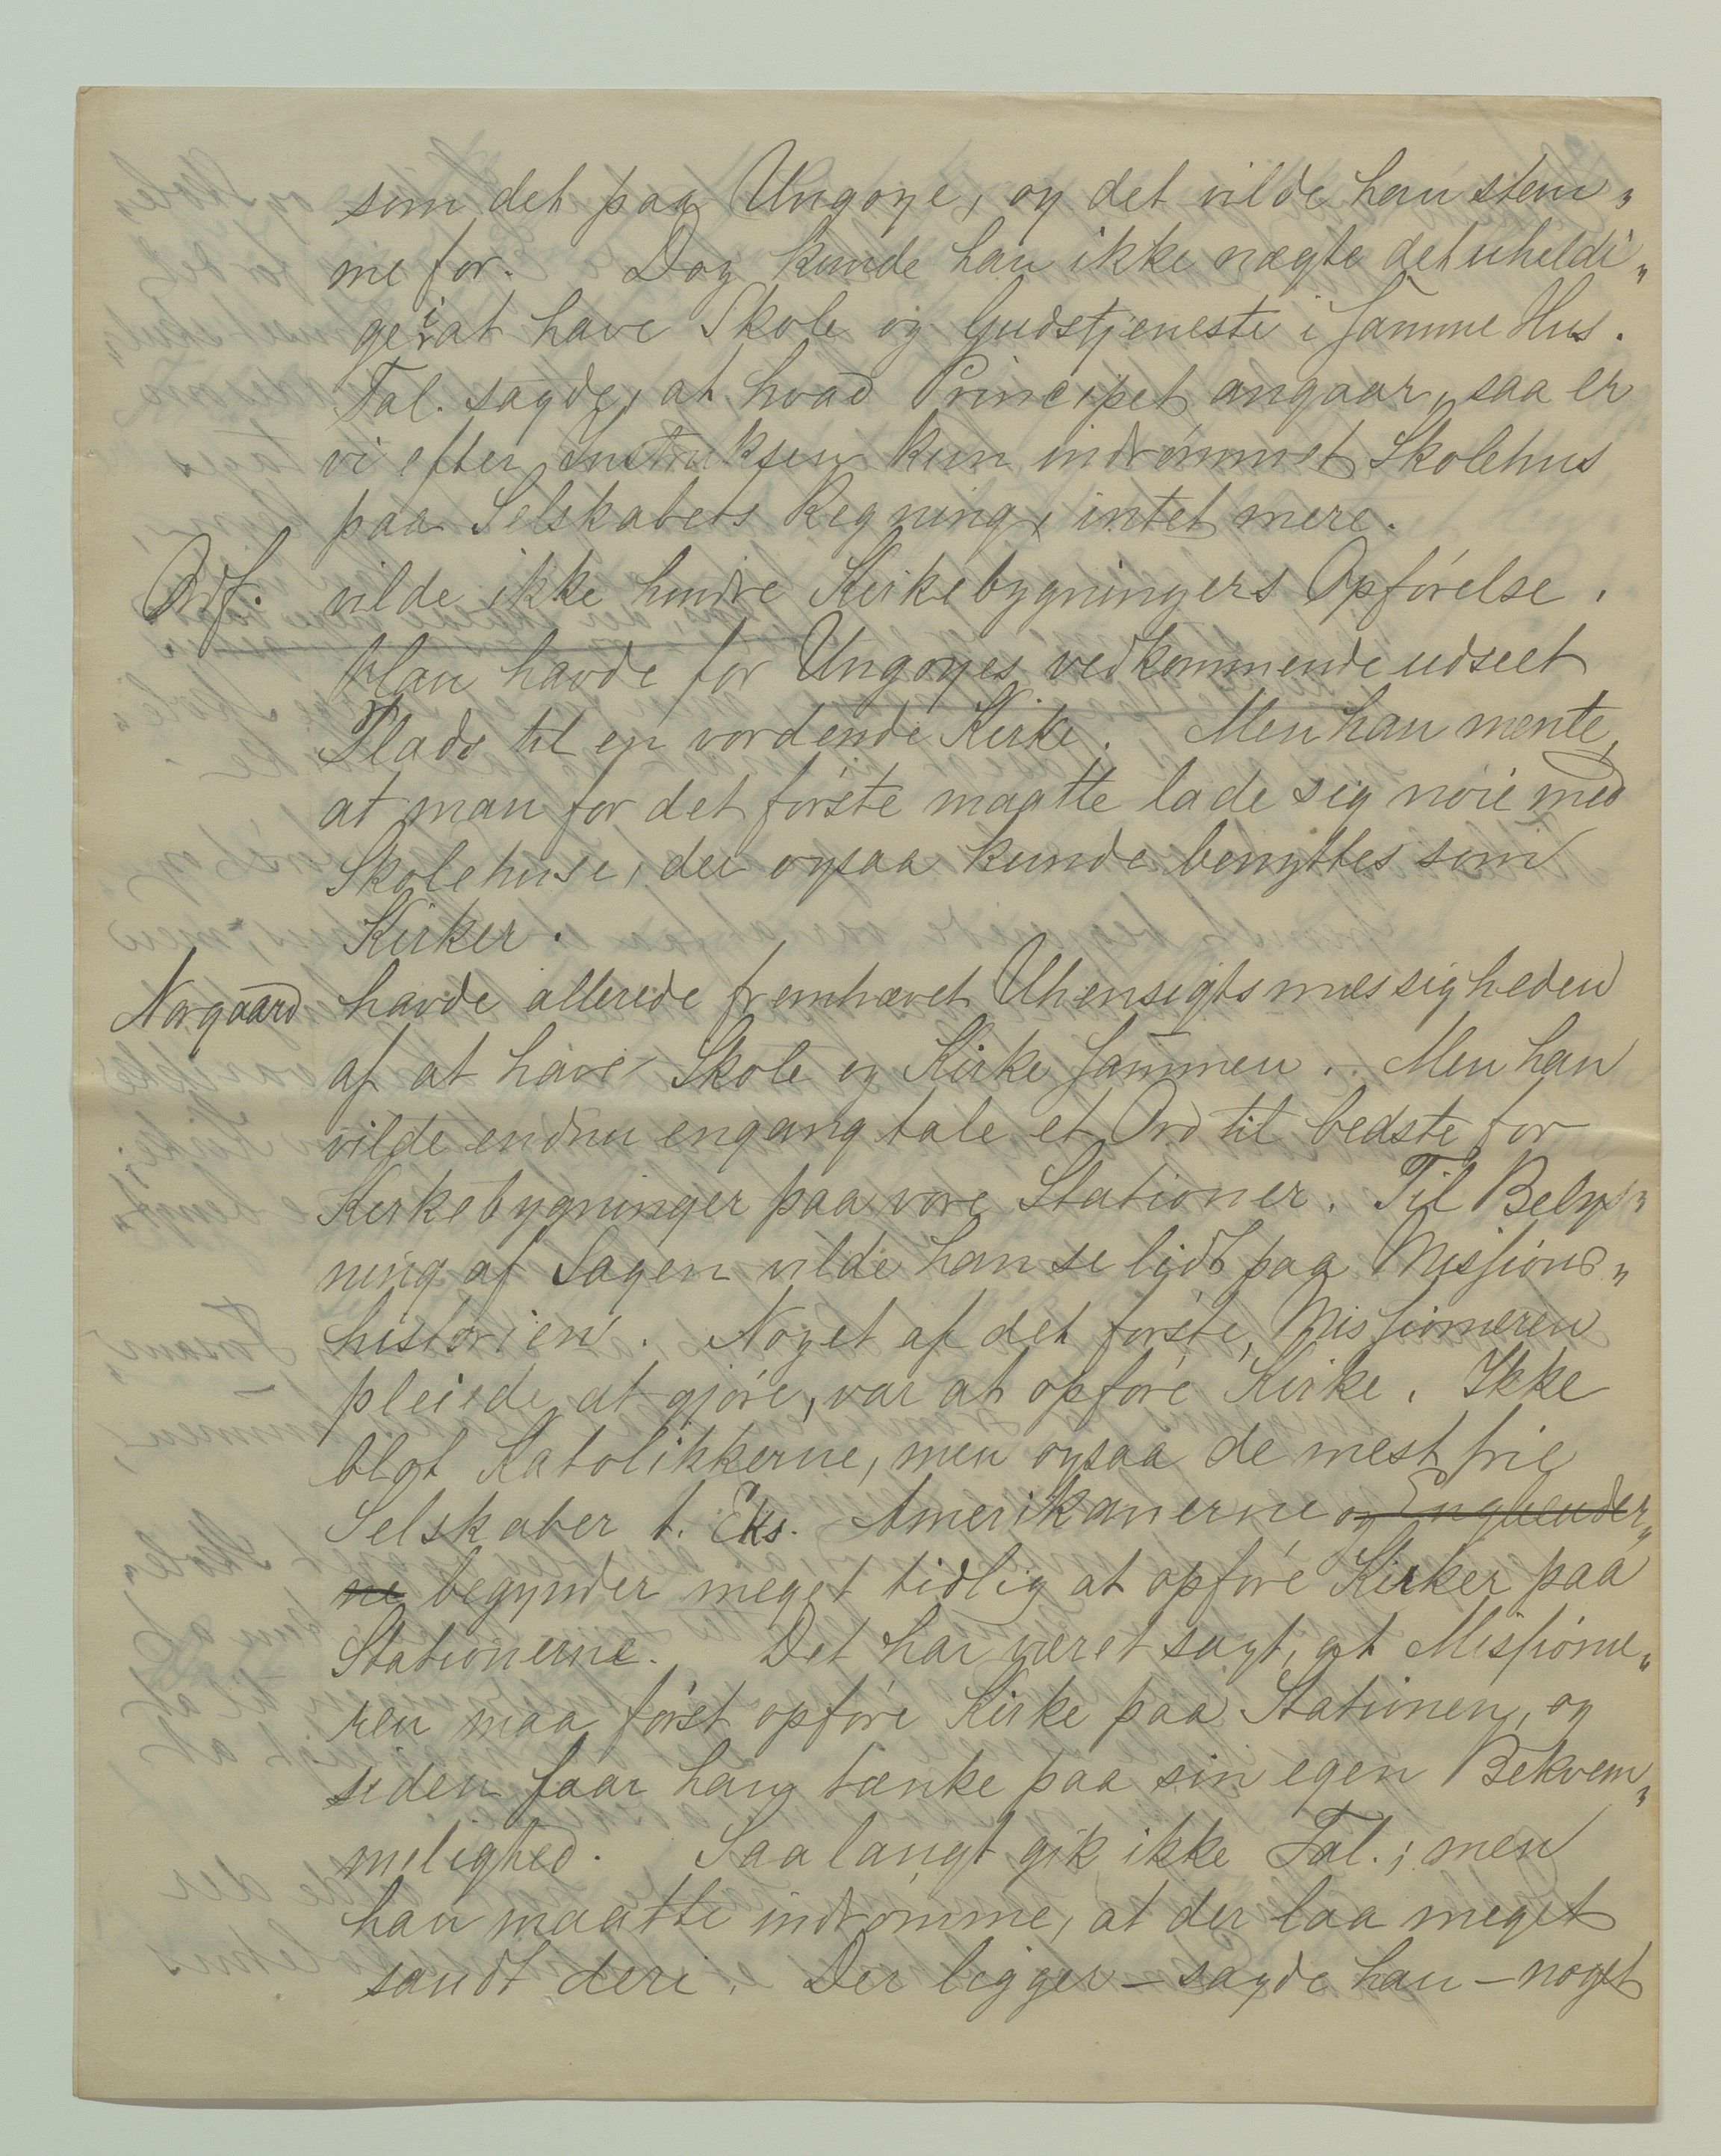 som det paa Ungoye, og det vilde han stem„
me for. Dog kunde han ikke nægte det uheldi„
ge i at have Skole og Gudstjeneste i samme Hus.
Tal. sagde, at hvad Principet angaar, saa er
vi efter Instruksen kun indrømmet Skolehus
paa Selskabets Regning, intet mere.
Ordf. vilde ikke hindre Kirkebygningers Opførelse.
Han havde for Ungoyes vedkommende udseet
Plads til en vordende Kirke. Men han mente,
at man for det første maatte lade sig nøie med
Skolehuse, der ogsaa kunde benyttes som
Kirker.
Norgaard havde allerede fremhævet Uhensigtsmessigheden
af at have Skole og Kirke sammen. Men han
vilde endnu engang tale et Ord til bedste for
Kirkebygninger paa vore Stationer. Til Belys„
ning af Sagen vilde han se lidt paa Missions„
historien. Noget af det første, Missionæren
pleiede at gjøre, var at opføre Kirke. Ikke
blot Katolikkerne, men ogsaa de mest frie
Selskaber t. Eks. Amerikanerne og Englænder„
ne begynder meget tidlig at opføre Kirker paa
Stationerne. Det har været sagt, at Missionæ„
ren maa først opføre Kirke paa Stationen, og
siden faar han tænke paa sin egen Bekvem„
melighed. Saa langt gik ikke Tal.; men
han maatte indrømme, at der laa meget
sandt deri. Der ligger – sagde han – noget